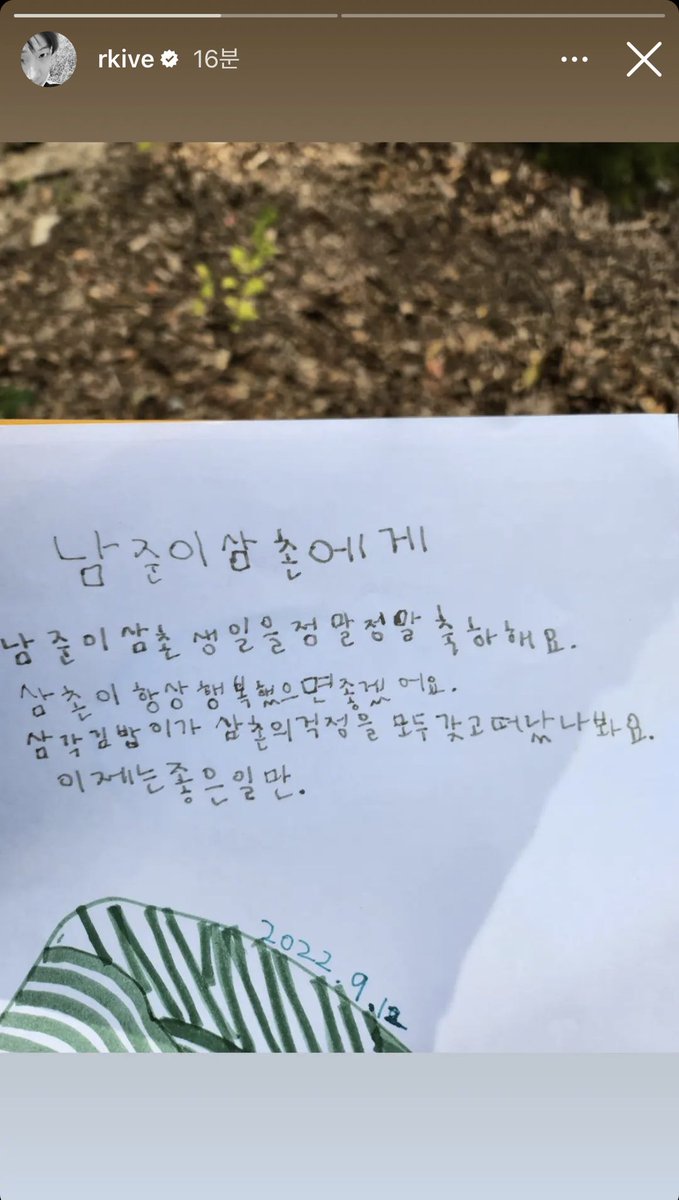 rkive 16분
남준이삼촌에게
남준이삼촌 생일을정말정말축하해요.
삼촌이 항상행복했으면좋겠어요.
삼각김밥이가 삼촌의걱정을 모두갖고떠났나봐요.
이제는좋은일만.
2022.9.12